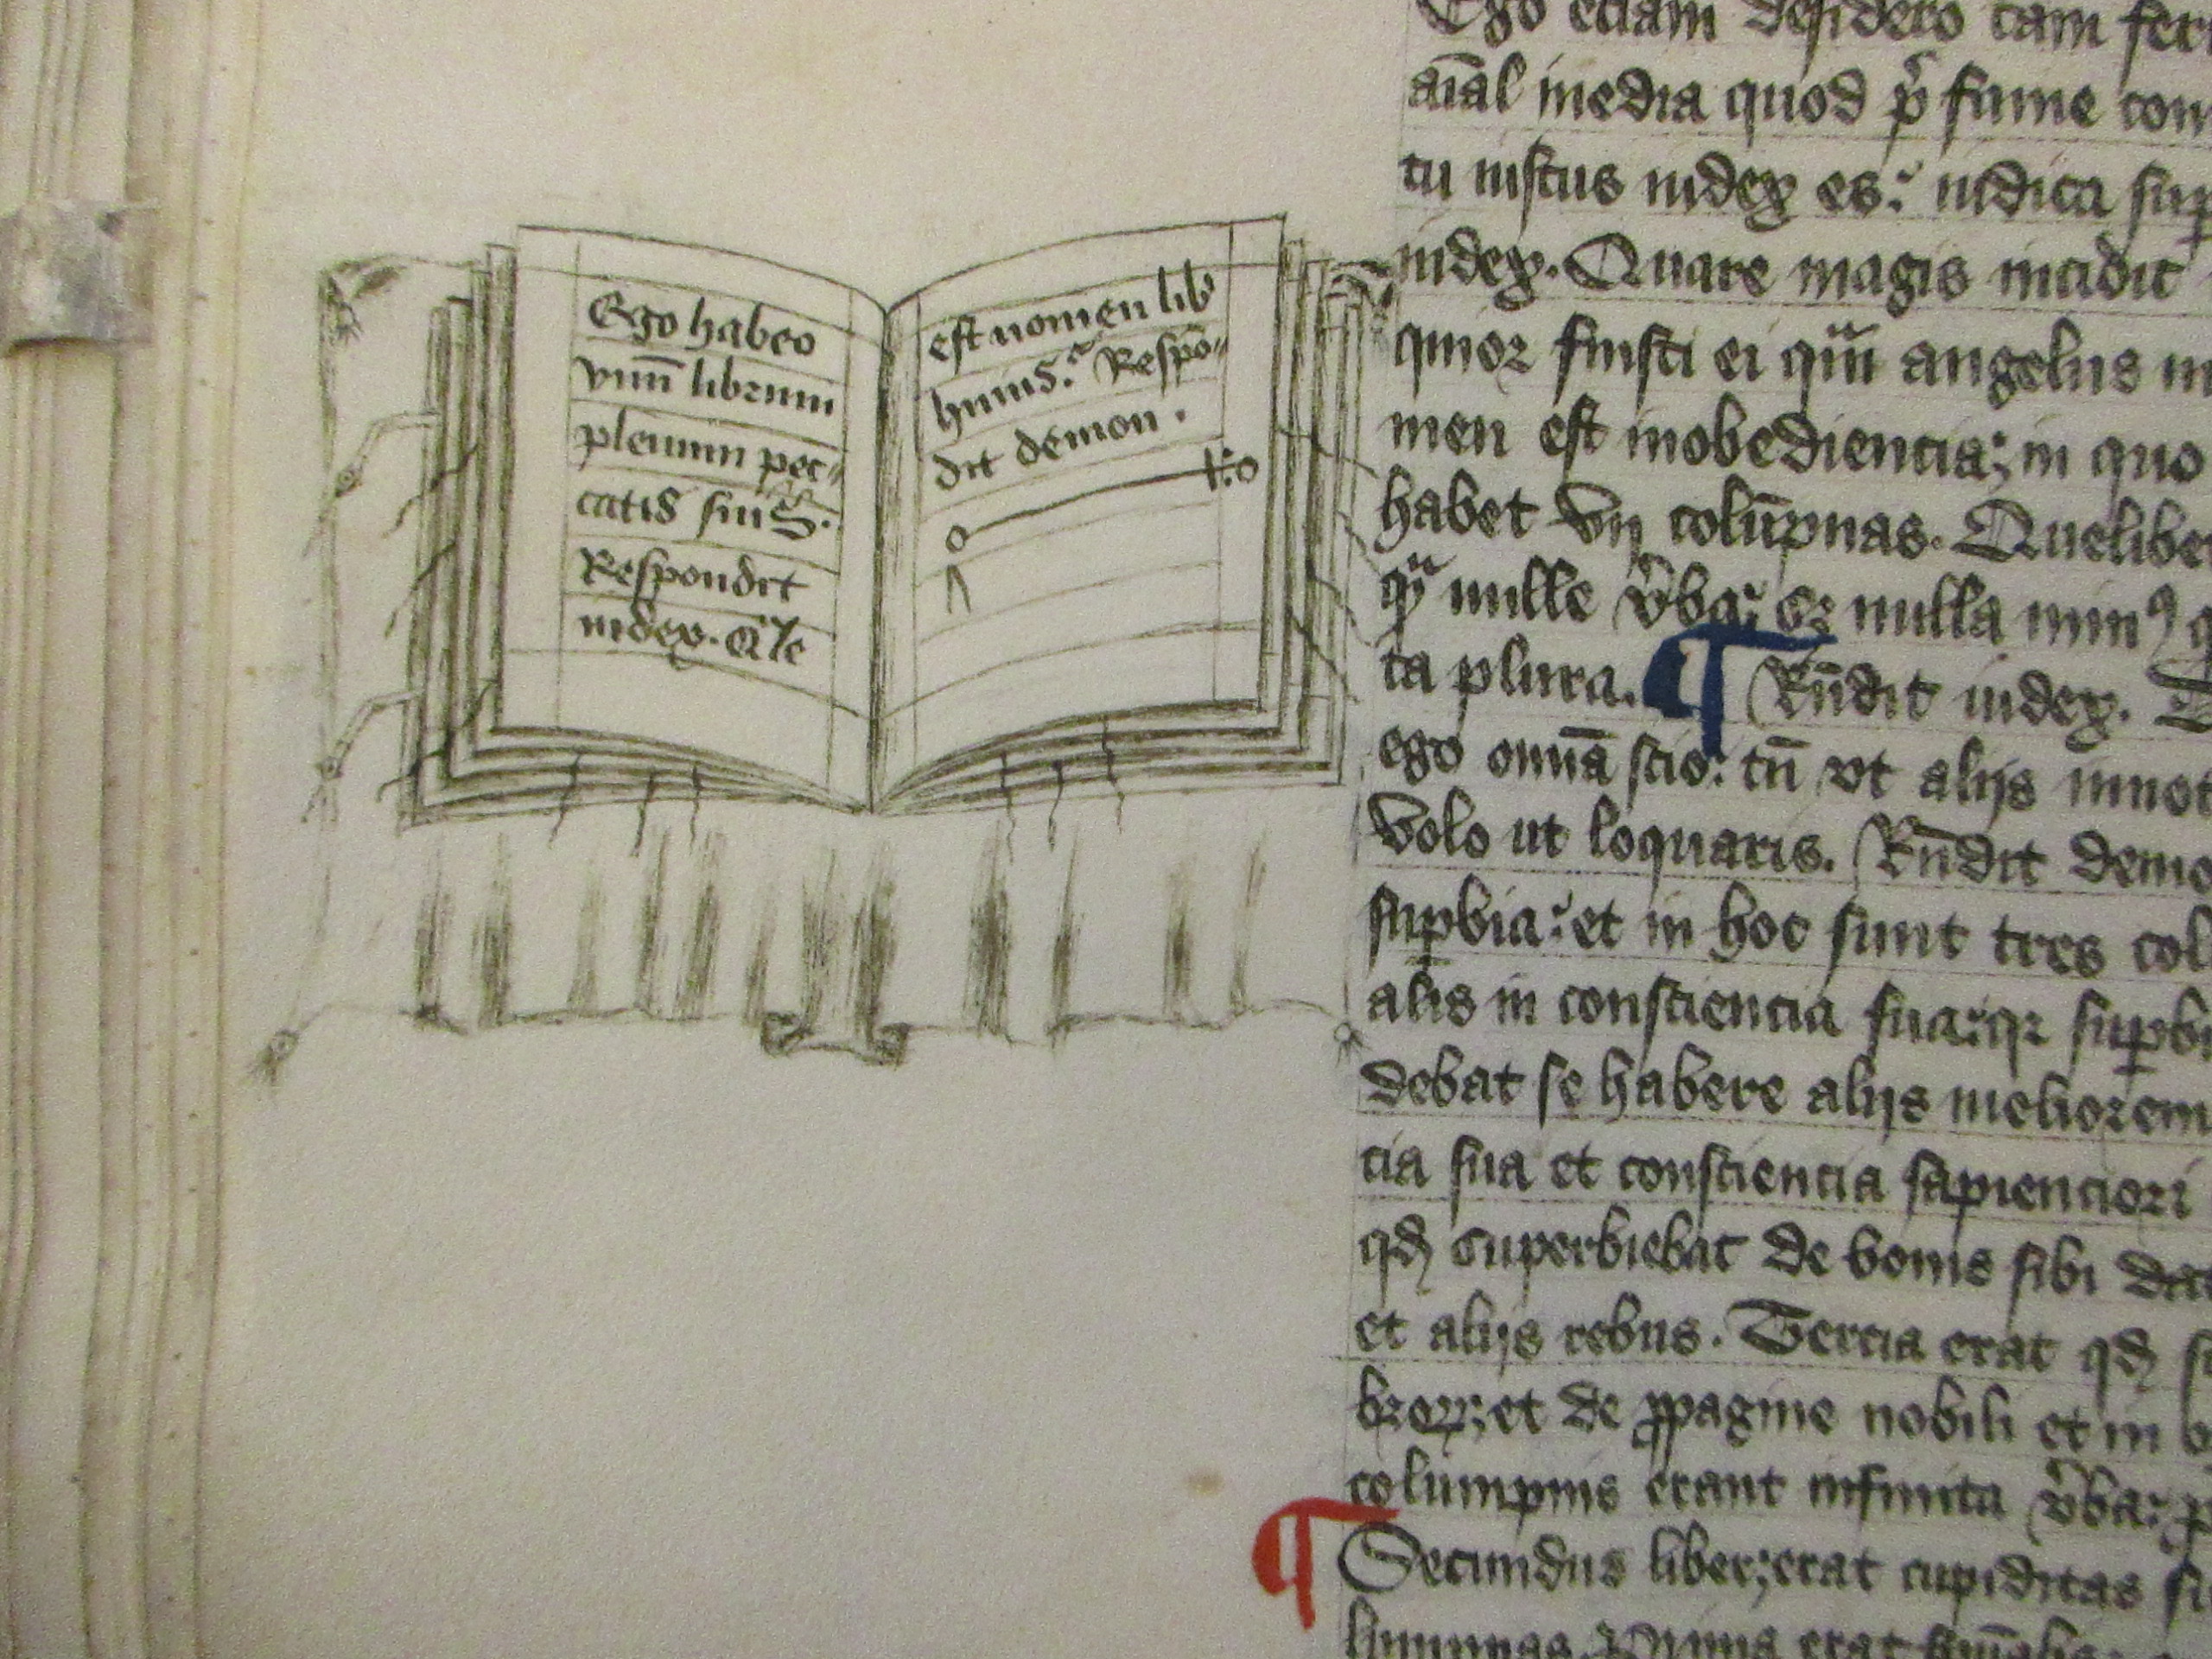 Ego habeo
vnū librum
plenum pec-
catis suis.
Respondit
iudex. Q̄le
est nomen lib'
huius? Respō-
dit demon.
Ego etiam desidero tam
aīal media quod fume
tu iustus iudex es: iudica
iudex. Quare magis incidit
quior fuisti ei angelus
men est inobediencia; in quo
habet vij colūpnas. Quelibet
mille v̄ba: et nulla min9
ta plura. ¶ Rn̄dit iudex.
ego omīa scio: tn̄ vt alijs
volo ut loquaris. Rn̄dit
supbia: et in hoc sunt tres
alis in consciencia sua: qr
debat se habere alijs meliorem
cia sua et consciencia sapienciori
qđ superbiebat de bonis sibi
et alijs rebus. Tercia erat qđ
et de ppagine nobili et in
columpnis erant infinita v̄ba:
¶ Secundus liber; erat cupiditas
erat